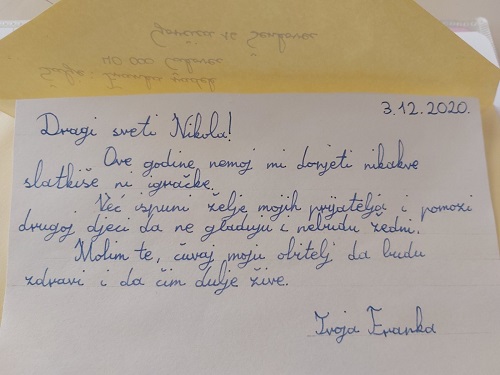 Šalje: Franka
40 000 Čakovec
Šenkovec
3.12.2020.
Dragi sveti Nikola!
Ove godine nemoj mi donjeti nikakve
slatkiše ni igračke.
Već ispuni želje mojih prijatelja i pomozi
drugoj djeci da ne gladuju i nebudu žedni.
Molim te, čuvaj moju obitelj da budu
zdravi i da čim dulje žive.
Tvoja Franka